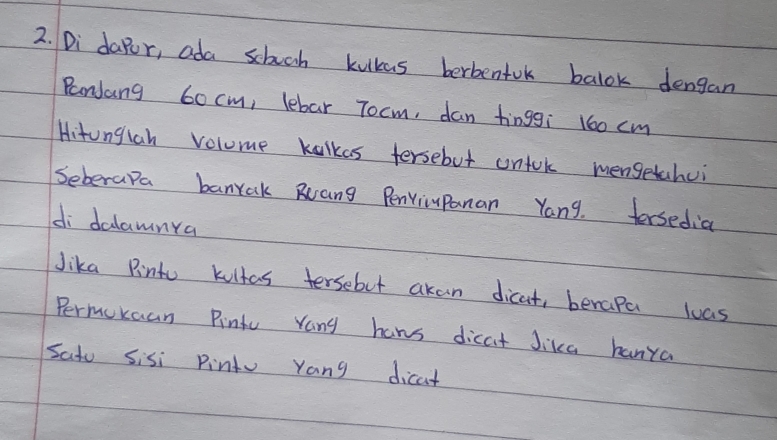 2. Di dapur, ada sebuah kulkas berbentuk balok dengan
Panjang 60 cm, lebar 70cm, dan tinggi 160 cm
Hitunglah volume kulkas tersebut untuk mengetahui
Seberapa banyak Ruang Penyimpanan Yang. tersedia
di dalamnya
Jika Pintu kulkas tersebut akan dicat, berapa luas
Permukaan Pintu Yang harus dicat Jika hanya
Satu Sisi Pintu Yang dicat